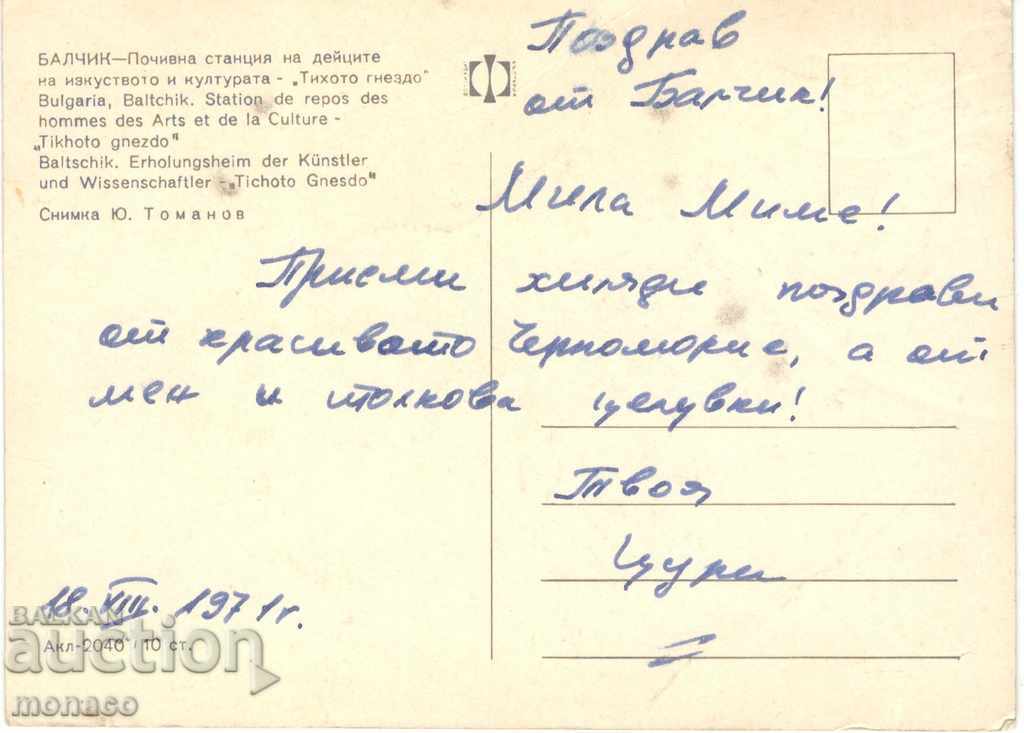 БАЛЧИК—Почивна станция на дейците
на изкуството и културата - „Тихото гнездо"
Bulgaria, Baltchik. Station de repos des
hommes des Arts et de la Culture -
„Tikhoto gnezdo"
Baltschik. Erholungsheim der Künstler
und Wissenschaftler - „Tichoto Gnesdo"
Снимка Ю. Томанов
Поздрав
от Балчик!
Мила Миме!
Приеми хиляди поздрави
от красивото Черноморие, а от
мен и толкова целувки!
Твоя
Цури
18. VIII. 1971г.
Акл-2040 / 10 ст.
BALKAN
auction
monaco